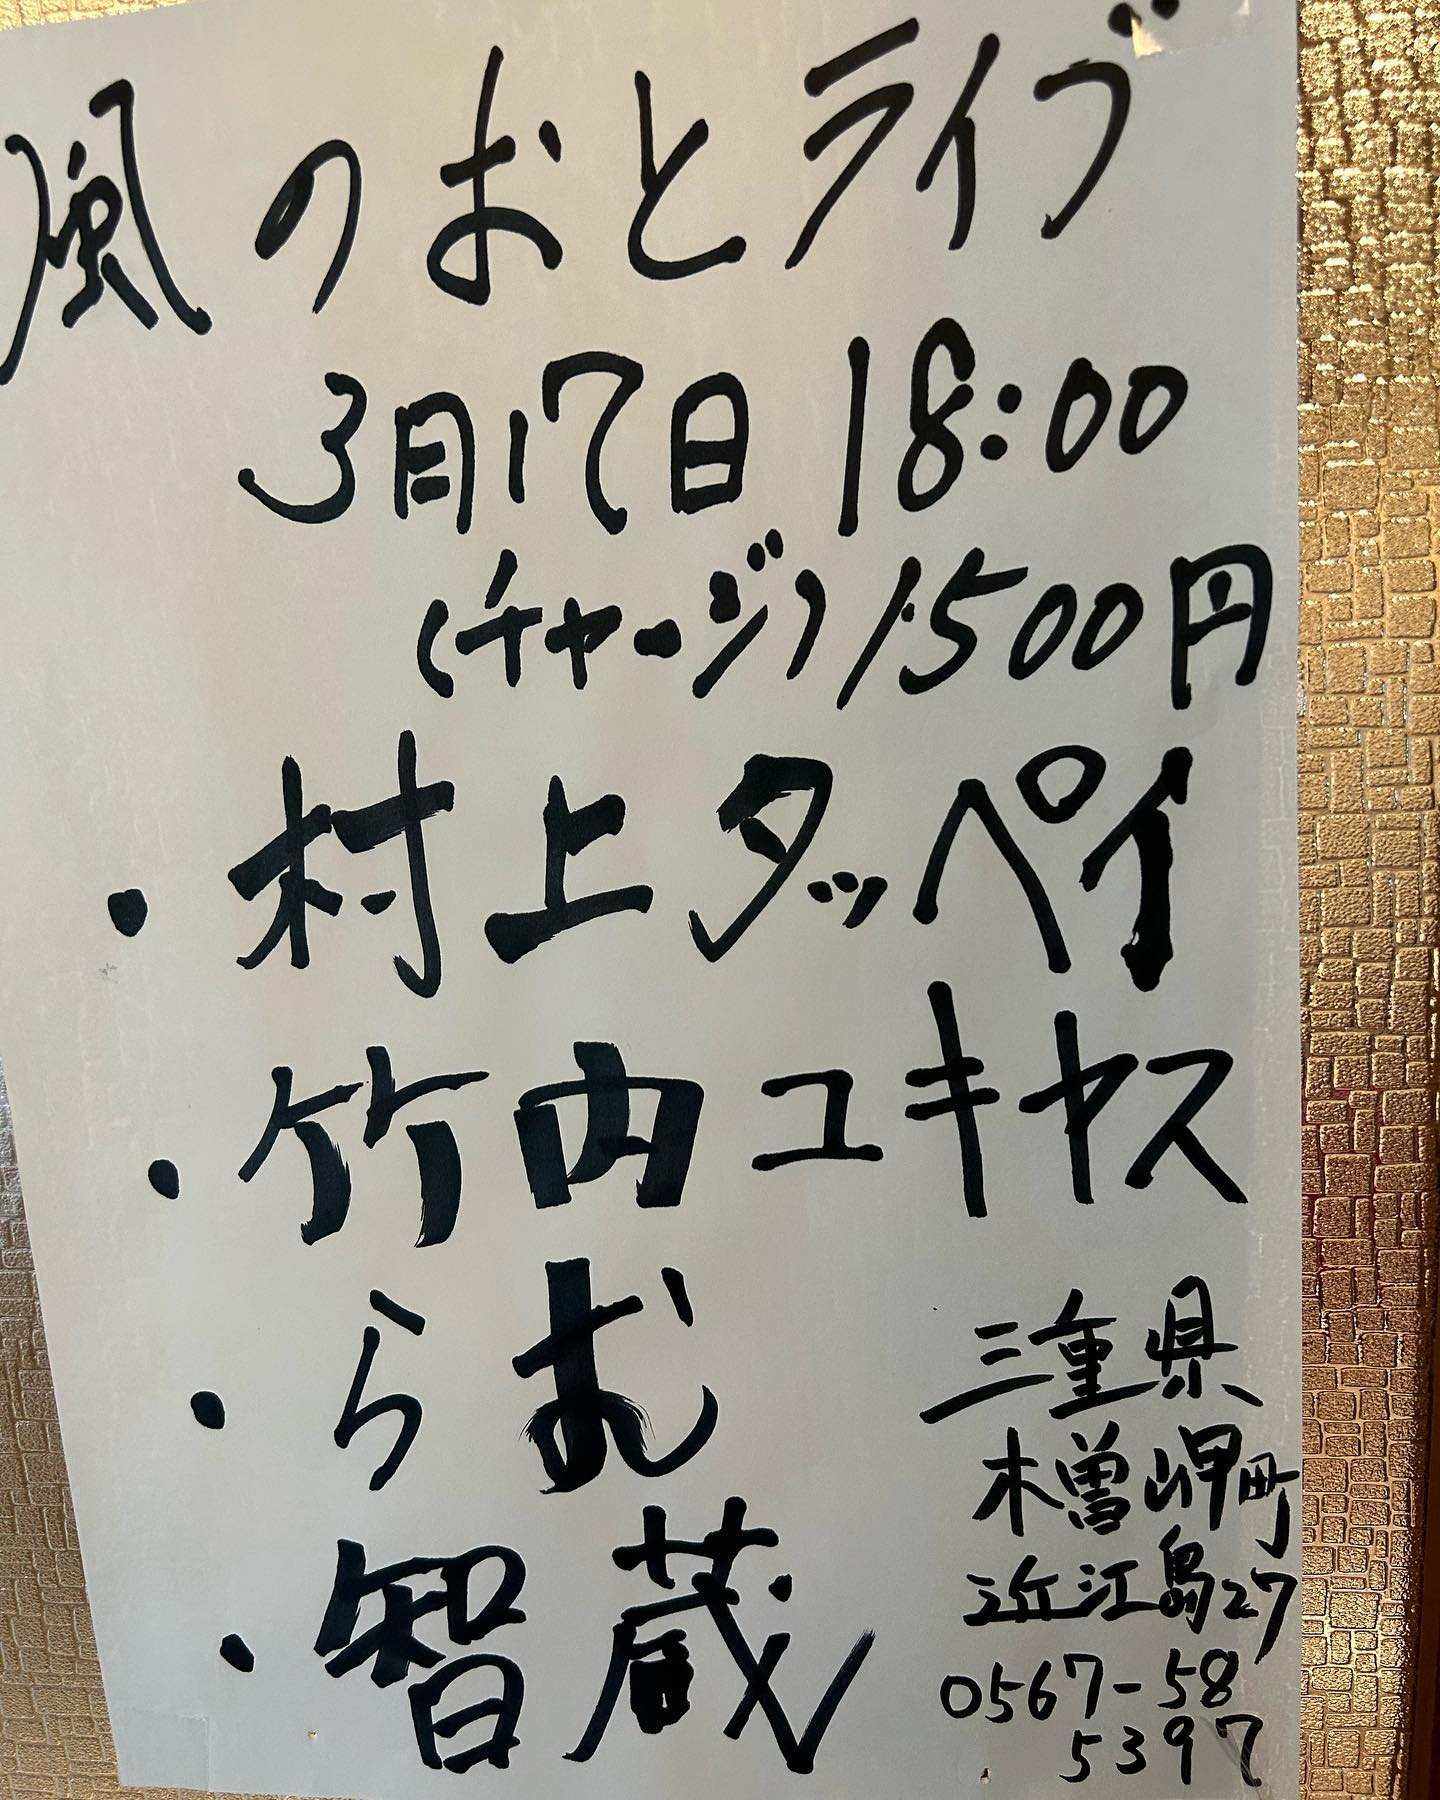 風のおとライブ
3月17日 18:00
(チャージ) 1500円
・村上タッペイ
・竹内ユキヤス
・らむ
・智蔵
三重県
木曽岬町
近江島27
0567-58
5397